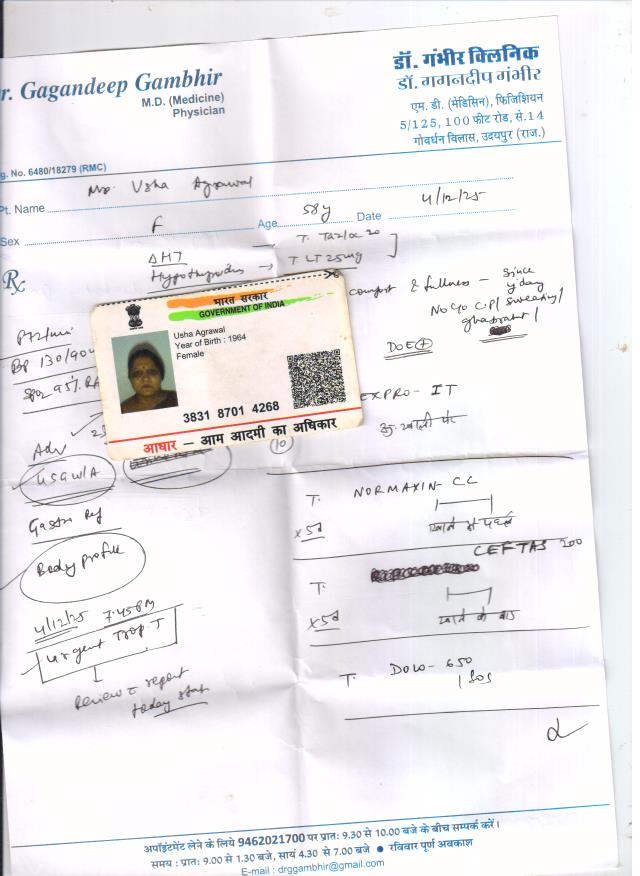 r. Gagandeep Gambhir
M.D. (Medicine)
Physician
डॉ. गंभीर क्लिनिक
डॉ. गगनदीप गंभीर
एम. डी. (मेडिसिन), फिजिशियन
5/125, 100 फीट रोड, से.14
गोवर्धन विलास, उदयपुर (राज.)
g. No. 6480/18279 (RMC)
Pt. Name Mrs. Usha Agrawal
Sex F Age 58y Date 4/12/25
Rx
Hypothyroidis → T LT 25mg
& fullness - since
yday
No C/o C.P/ sweating/
ghabrahat/
DOE
P72/min
BP 130/90
SpO2 95% RA
भारत सरकार
GOVERNMENT OF INDIA
Usha Agrawal
Year of Birth : 1964
Female
3831 8701 4268
आधार - आम आदमी का अधिकार
EXPRO- IT
खाली पेट
10
Adv
USG W/A
Gastro Ref
Body profile
4/12/25 7:45PM
Urgent Trop. T
Review c report
today
T. NORMAXIN- CC
x5d
खाने से पहले
CEFTAS 200
T.
x5d
खाने के बाद
T. DOLO- 650
1 SOS
अपॉइंटमेंट लेने के लिये 9462021700 पर प्रात: 9.30 से 10.00 बजे के बीच सम्पर्क करें।
समय : प्रात: 9.00 से 1.30 बजे, सायं 4.30 से 7.00 बजे ● रविवार पूर्ण अवकाश
E-mail : drggambhir@gmail.com